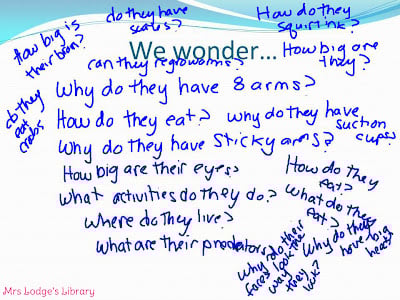 do they have
scales?
How do they
squirt ink?
How big is
their brain?
We wonder...
How big are
they?
can they regrow arms?
Why do they have 8 arms?
do they
eat
crabs
How do they eat?
why do they have
suction
cups?
Why do they have sticky arms?
How big are their eyes?
How do they
eat?
What activities do they do?
What do they
eat?
Where do they live?
what are their predators?
Why do their
faces look the
way they
look?
Why do they
have big
heads
Mrs Lodge's Library